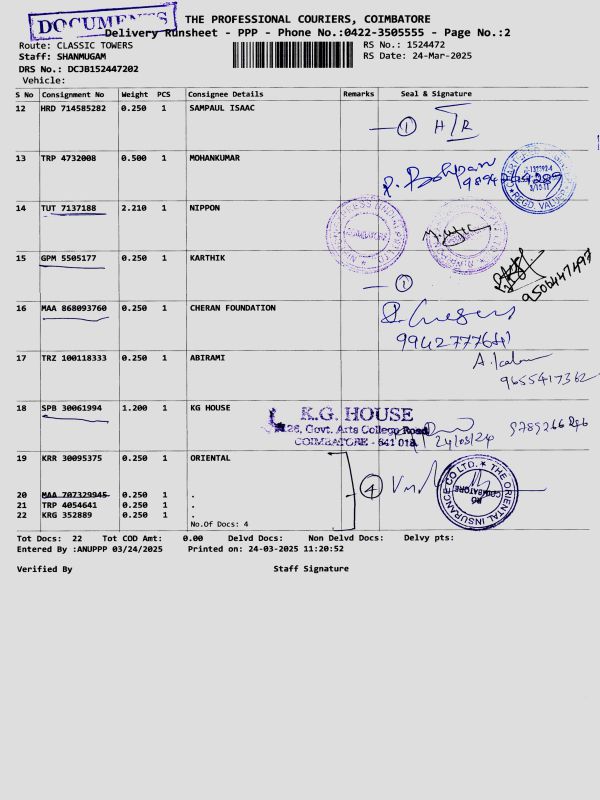 DOCUMENTS
THE PROFESSIONAL COURIERS, COIMBATORE
Delivery Runsheet - PPP - Phone No.:0422-3505555 - Page No.:2
Route: CLASSIC TOWERS
RS No.: 1524472
Staff: SHANMUGAM
RS Date: 24-Mar-2025
DRS No.: DCJB152447202
Vehicle:
S No Consignment No Weight PCS Consignee Details Remarks Seal & Signature
12 HRD 714585282 0.250 1 SAMPAUL ISAAC
1 H/R
13 TRP 4732008 0.500 1 MOHANKUMAR
REGD. VALUER
14 TUT 7137188 2.210 1 NIPPON
COIMBATORE
15 GPM 5505177 0.250 1 KARTHIK
1
16 MAA 868093760 0.250 1 CHERAN FOUNDATION
17 TRZ 100118333 0.250 1 ABIRAMI
9655417362
18 SPB 30061994 1.200 1 KG HOUSE
K.G. HOUSE
Govt. Arts College Road
COIMBATORE - 641 018
19 KRR 30095375 0.250 1 ORIENTAL
THE ORIENTAL INSURANCE CO LTD.
COIMBATORE
4
20 MAA 707329945 0.250 1 .
21 TRP 4054641 0.250 1 .
22 KRG 352889 0.250 1 .
No.Of Docs: 4
Tot Docs: 22 Tot COD Amt: 0.00 Delvd Docs: Non Delvd Docs: Delvy pts:
Entered By :ANUPPP 03/24/2025 Printed on: 24-03-2025 11:20:52
Verified By Staff Signature